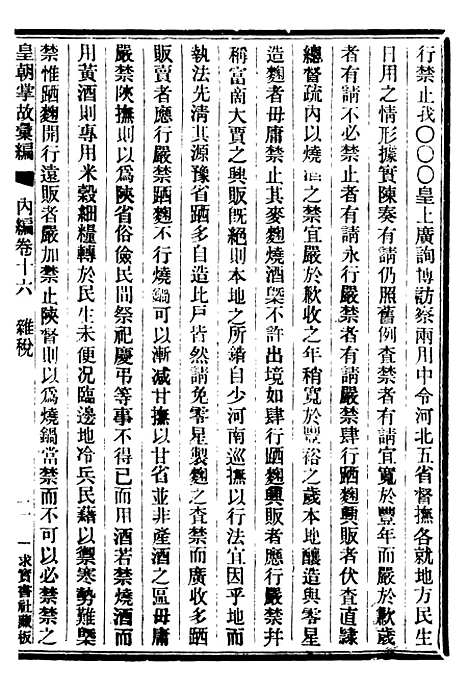 行禁止我〇〇〇皇上廣詢博訪察兩用中令河北五省督撫各就地方民生
日用之情形據實陳奏有請仍照舊例查禁者有請宜寬於豐年而嚴於歉歲
者有請不必禁止者有請永行嚴禁者有請嚴禁肆行跴麯興販者伏查直隸
總督疏內以燒酒之禁宜嚴於歉收之年稍寬於豐裕之歲本地釀造與零星
造麯者毋庸禁止其麥麯燒酒槩不許出境如肆行跴麯興販者應行嚴禁并
稱富商大賈之興販既絕則本地之所銷自少河南巡撫以行法宜因乎地而
執法先清其源豫省跴多自造比戶皆然請免零星製麯之查禁而廣收多跴
販賣者應行嚴禁跴麯不行燒鍋可以漸減甘撫以甘省並非產酒之區毋庸
嚴禁陝撫則以為陝省俗儉民間祭祀慶弔等事不得已而用酒若禁燒酒而
用黃酒則專用米穀細糧轉於民生未便况臨邊地冷兵民藉以禦寒勢難槩
禁惟跴麯開行遠販者嚴加禁止陝督則以為燒鍋當禁而不可以必禁禁之
皇朝掌故彙編 內編卷十六 雜稅 求實書社藏板